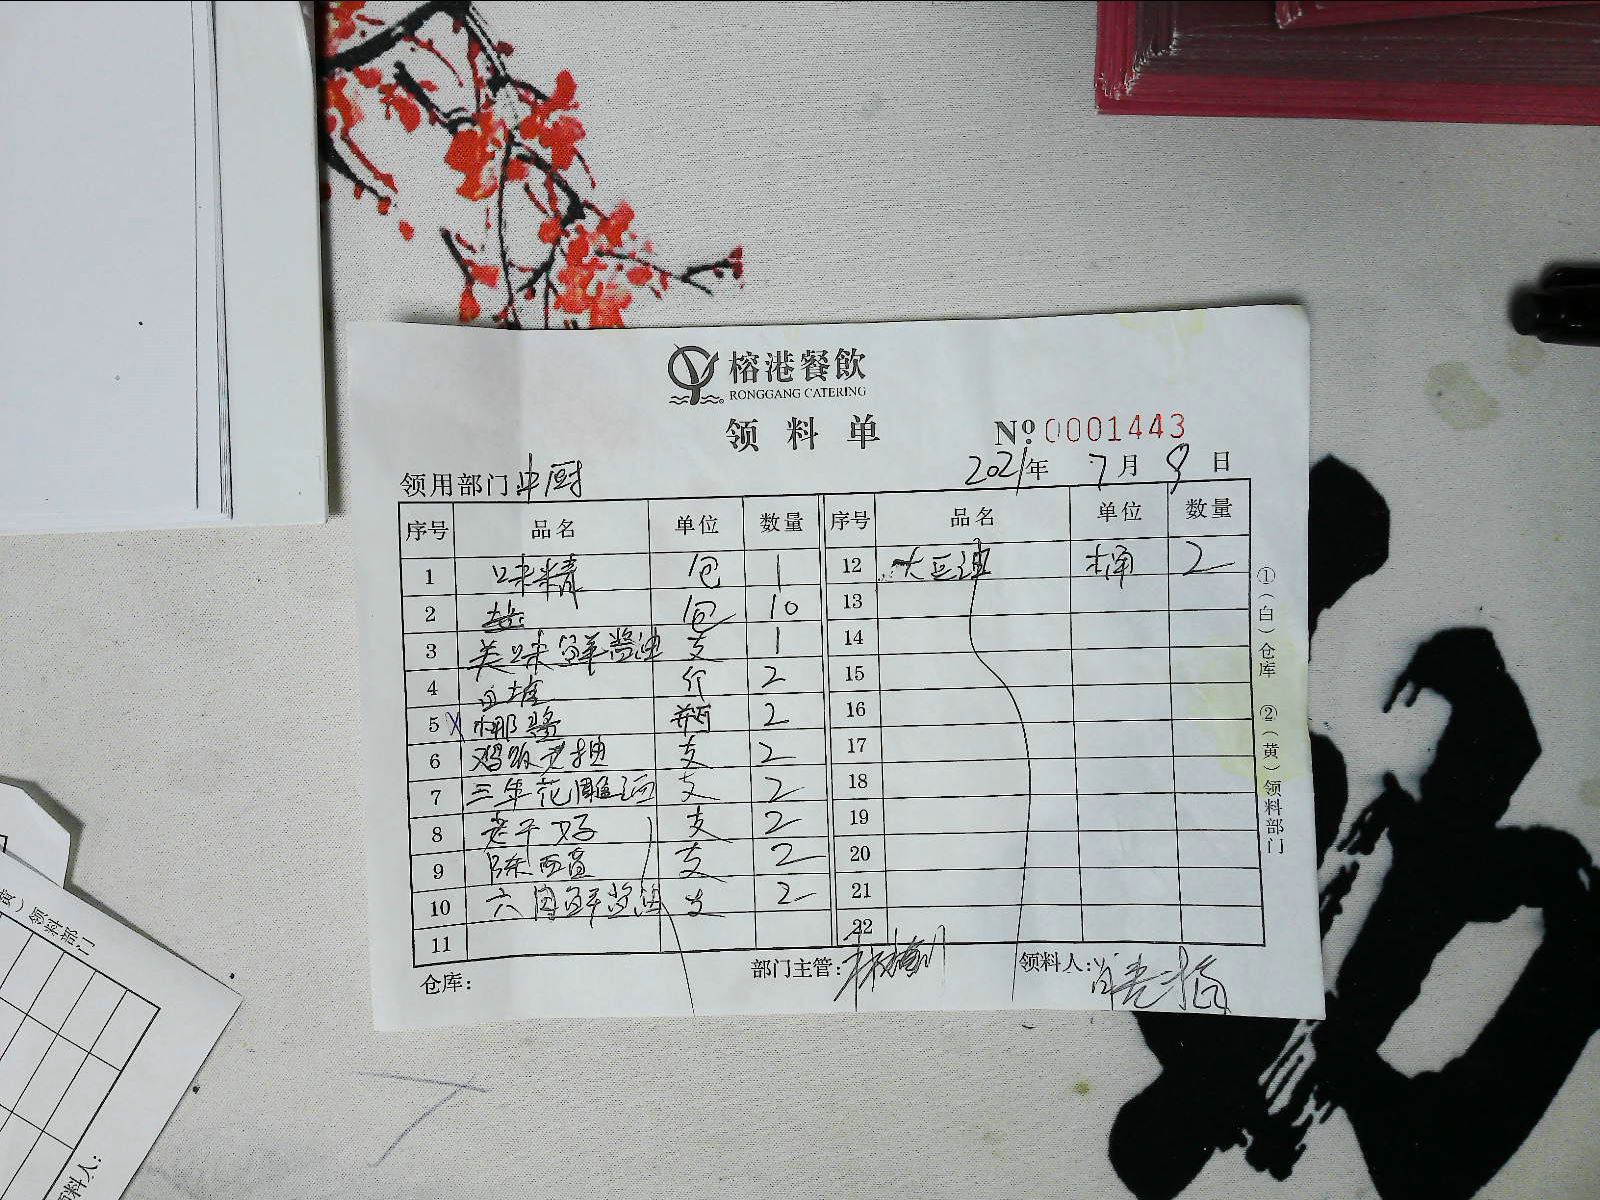 榕港餐飲
RONGGANG CATERING
领料单
№ 0001443
领用部门 中厨 2021年 7月 9日
序号 品名 单位 数量 序号 品名 单位 数量
1 味精 包 1 12 大豆油 桶 2
2 盐 包 10 13
3 美味鲜酱油 支 1 14
4 个 2 15
5 椰酱 瓶 2 16
6 鸡饭老抽 支 2 17
7 三年花雕酒 支 2 18
8 老干妈 支 2 19
9 陈西 支 2 20
10 六月鲜酱油 支 2 21
11 22
仓库: 部门主管: 领料人:
①（白）仓库 ②（黄）领料部门
）领料部门
领料人: